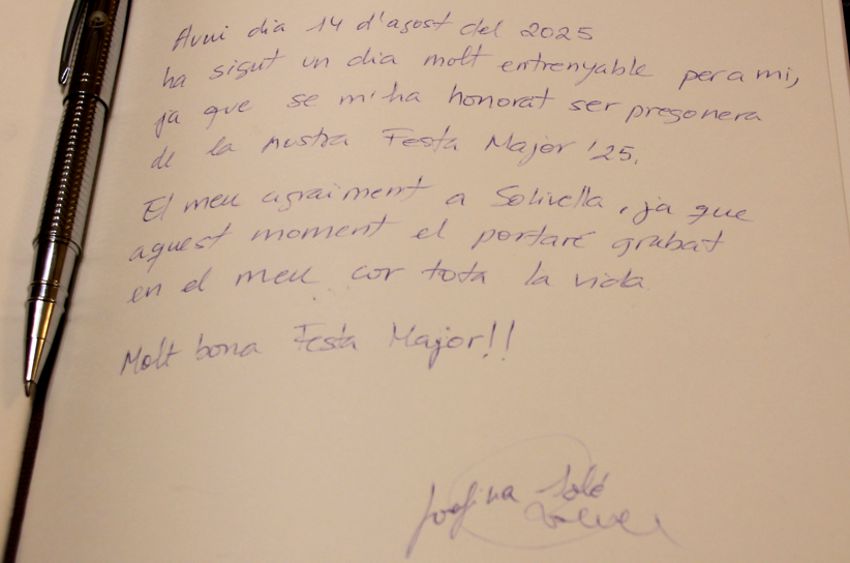 Avui dia 14 d'agost del 2025
ha sigut un dia molt entrenyable per a mi,
ja que se m'ha honorat ser pregonera
de la nostra Festa Major '25.
El meu agraiment a Solivella, ja que
aquest moment el portaré grabat
en el meu cor tota la vida.
Molt bona Festa Major!!
Josefina Solé